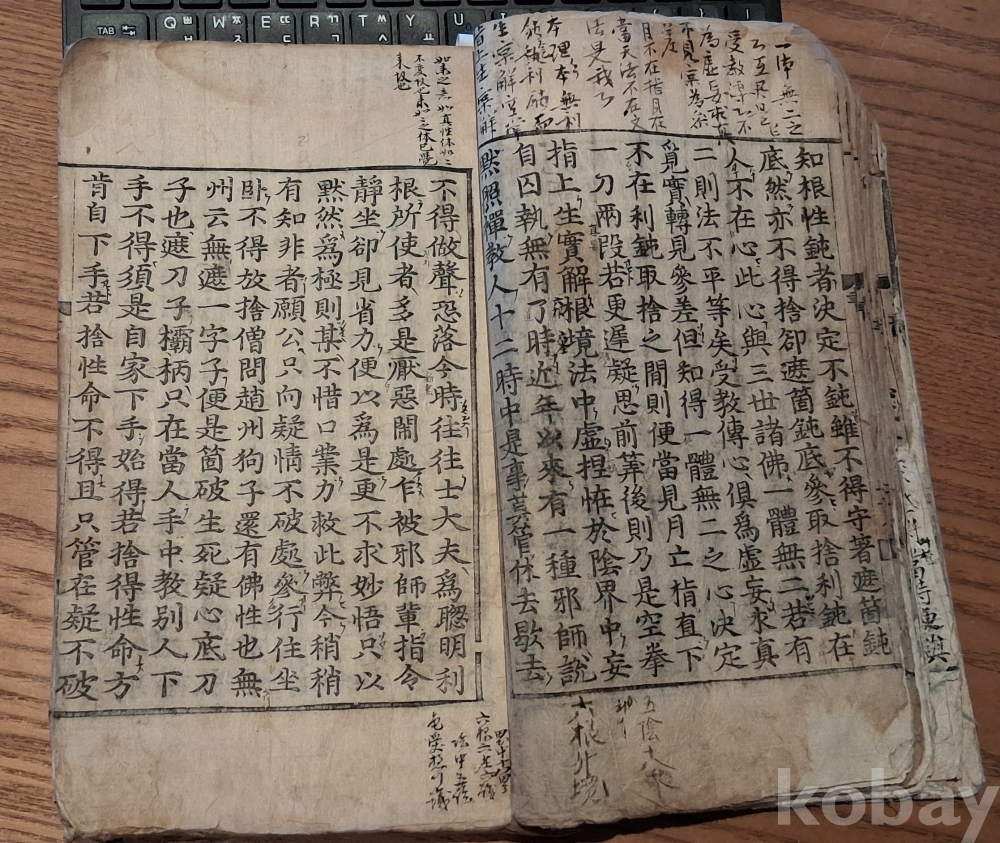 TAB
ㅂ ㅈ ㄷ ㄱ
一体無二之
月不在指月在
當天法不在文
法是我了
本理本無利
知根性鈍者決定不鈍雖不得守著遮箇鈍
底然亦不得捨卻遮箇鈍底參取捨利鈍在
人不在心此心與三世諸佛一體無二若有
二則法不平等矣受教傳心俱爲虛妄求真
覓實轉見參差但知得一體無二之心決定
不在利鈍取捨之間則便當見月亡指直下
一刀兩段若更遲疑思前筭後則乃是空拳
指上生實解根境法中虛捏怪於陰界中妄
自囚執無有了時近年以來有一種邪師說
默照禪教人十二時中是事莫管休去歇去
五陰十八界
六根外境
不得做聲恐落今時往往士大夫爲聰明利
根所使者多是厭惡鬧處乍被邪師輩指令
靜坐卻見省力便以爲是更不求妙悟只以
默然爲極則某不惜口業力救此弊今稍稍
有知非者願公只向疑情不破處參行住坐
臥不得放捨僧問趙州狗子還有佛性也無
州云無遮一字子便是箇破生死疑心底刀
子也遮刀子欛柄只在當人手中教別人下
手不得須是自家下手始得若捨得性命方
肯自下手若捨性命不得且只管在疑不破
kobay